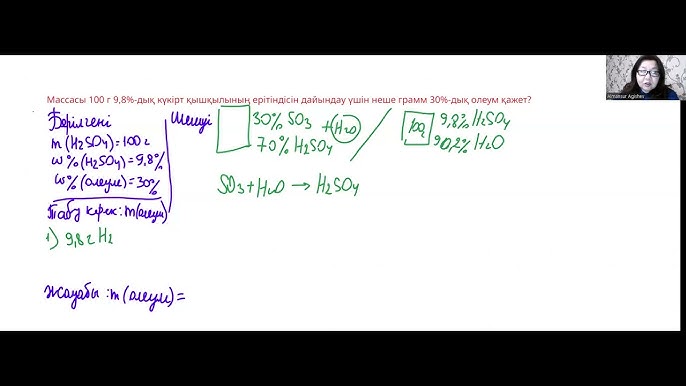 Массасы 100 г 9,8%-дық күкірт қышқылының ерітіндісін дайындау үшін неше грамм 30%-дық олеум қажет?
Берілгені
m(H2SO4)=100г
w%(H2SO4)=9,8%
w%(олеум)=30%
Табу керек: m(олеум)
1) 9,8г H2
Шешуі
30% SO3
70% H2SO4
+H2O
100г
9,8% H2SO4
90,2% H2O
SO3+H2O→H2SO4
Жауабы: m(олеум)=
Almansur Agishev